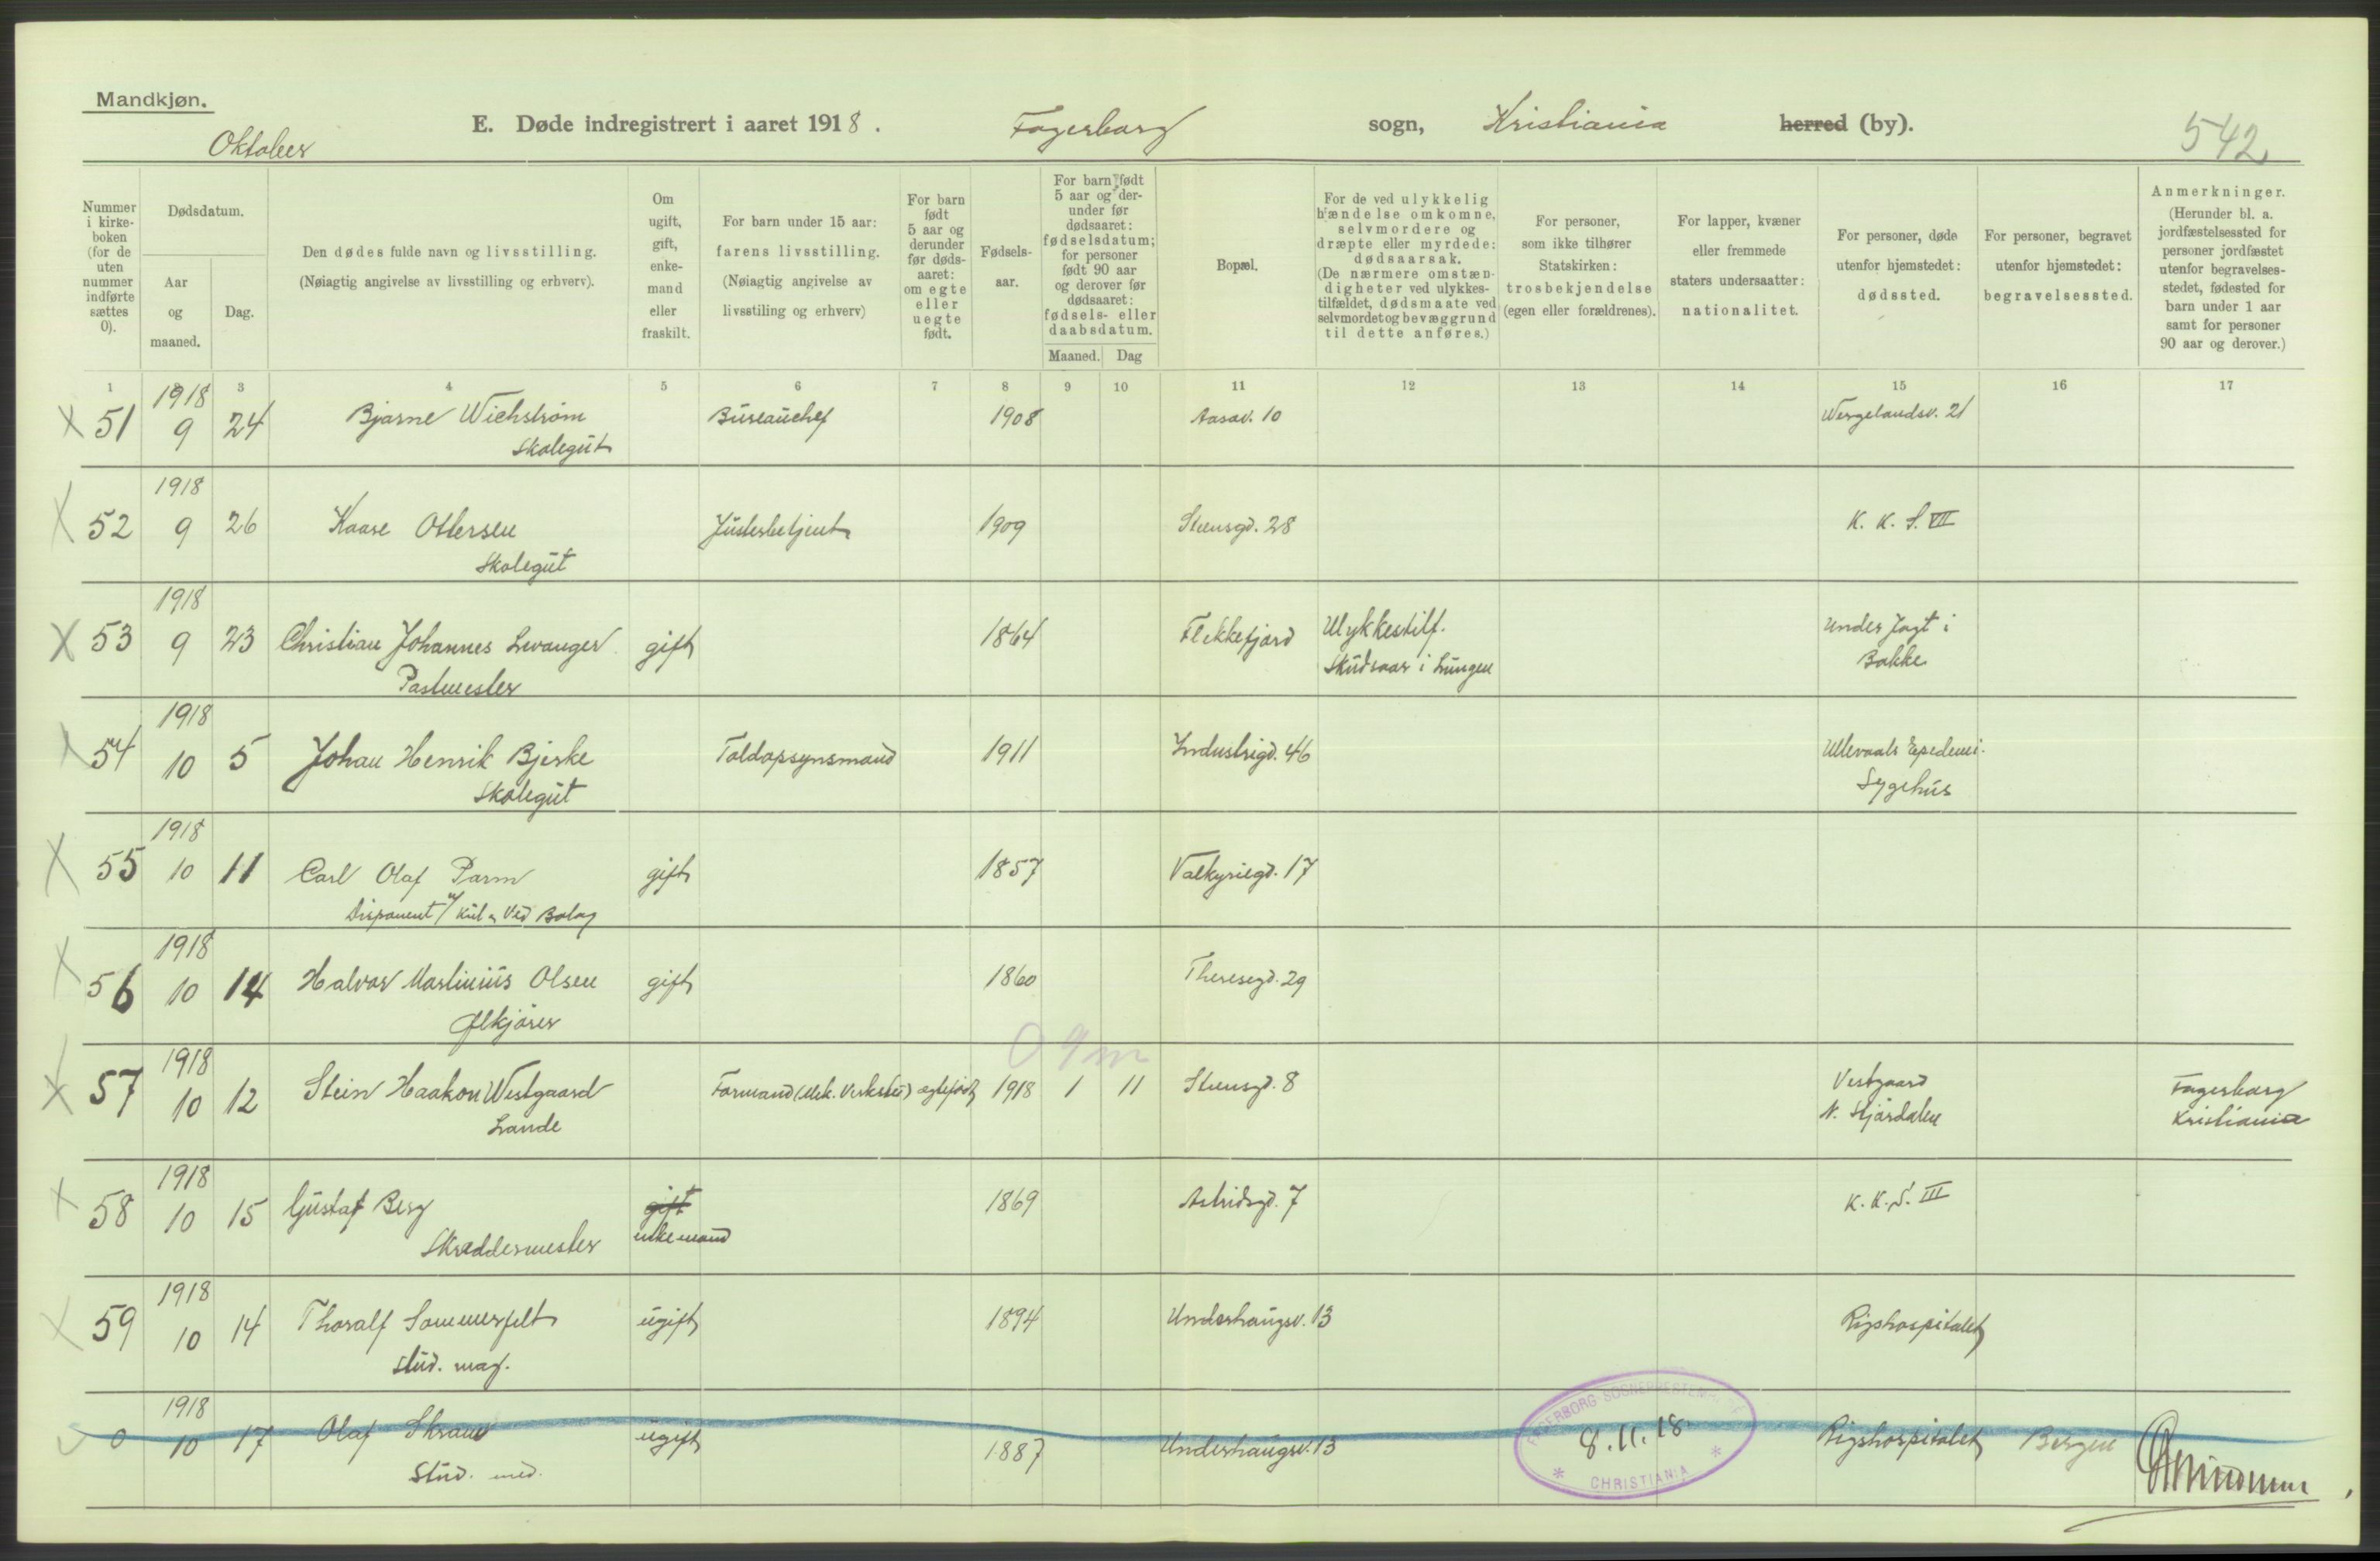 Mandkjøn.
Oktober
E. Døde indregistrert i aaret 1918. Fagerborg sogn, Kristiania herred (by). 542
Nummer i kirke-boken (for de uten nummer indførte sættes 0).
Dødsdatum.
Aar og maaned.
Dag.
Den dødes fulde navn og livsstilling.
(Nøiagtig angivelse av livsstilling og erhverv).
Om ugift, gift, enke-mand eller fraskilt.
For barn under 15 aar: farens livsstilling.
(Nøiagtig angivelse av livsstiling og erhverv)
For barn født 5 aar og derunder før døds-aaret: om egte eller uegte født.
Fødsels-aar.
For barn født 5 aar og der-under før dødsaaret: fødselsdatum; for personer født 90 aar og derover før dødsaaret: fødsels- eller daabsdatum.
Maaned. Dag
Bopæl.
For de ved ulykkelig hændelse omkomne, selvmordere og dræpte eller myrdede: dødsaarsak.
(De nærmere omstæn-digheter ved ulykkes-tilfældet, dødsmaate ved selvmordet og bevæggrund til dette anføres.)
For personer, som ikke tilhører Statskirken: trosbekjendelse (egen eller forældrenes).
For lapper, kvæner eller fremmede staters undersaatter: nationalitet.
For personer, døde utenfor hjemstedet: dødssted.
For personer, begravet utenfor hjemstedet: begravelsessted.
Anmerkninger.
(Herunder bl. a. jordfæstelsessted for personer jordfæstet utenfor begravelses-stedet, fødested for barn under 1 aar samt for personer 90 aar og derover.)
1 3 4 5 6 7 8 9 10 11 12 13 14 15 16 17
1918
X 51 9 24 Bjarne Wichstrøm Bureauchef 1908 Aasav. 10 Wergelandsv. 21
Skolegut
1918
X 52 9 26 Kaare Ottersen Justerbetjent 1909 Stensgd. 28 K. K. S. VII
Skolegut
1918
X 53 9 23 Christian Johannes Levanger gift 1864 Flekkefjord Ulykkestilf. Under Jagt i
Postmester Skudsaar i Lungen Bakke
1918
X 54 10 5 Johan Henrik Bjerke Toldopsynsmand 1911 Industrigd. 46 Ullevaals Epedemi.
Skolegut Sygehus
1918
X 55 10 11 Carl Olaf Parm gift 1857 Valkyriegd. 17
Disponent v/ Kul & Ved Bolag
1918
X 56 10 14 Halvor Martinius Olsen gift 1860 Theresegd. 29
Ølkjører
0 9 m
1918
X 57 10 12 Stein Haakon Westgaard Formand (Mek. Verksted) egtefødt 1918 1 11 Stensgd. 8 Vestgaard Fagerborg
Lande N. Stjørdalen Kristiania
1918
X 58 10 15 Gustaf Berg gift 1869 Astridsgd. 7 K. K. S. III
Skreddermester enkemand
1918
X 59 10 14 Thoralf Sommerfelt ugift 1894 Underhaugsv. 13 Rigshospitalet
stud. mag.
1918
0 10 17 Olaf ugift 1887 Underhaugsv. 13 Rigshospitalet Bergen
Stud. med.
FAGERBORG SOGNEPRESTEMB.
8.11.18
* CHRISTIANIA *